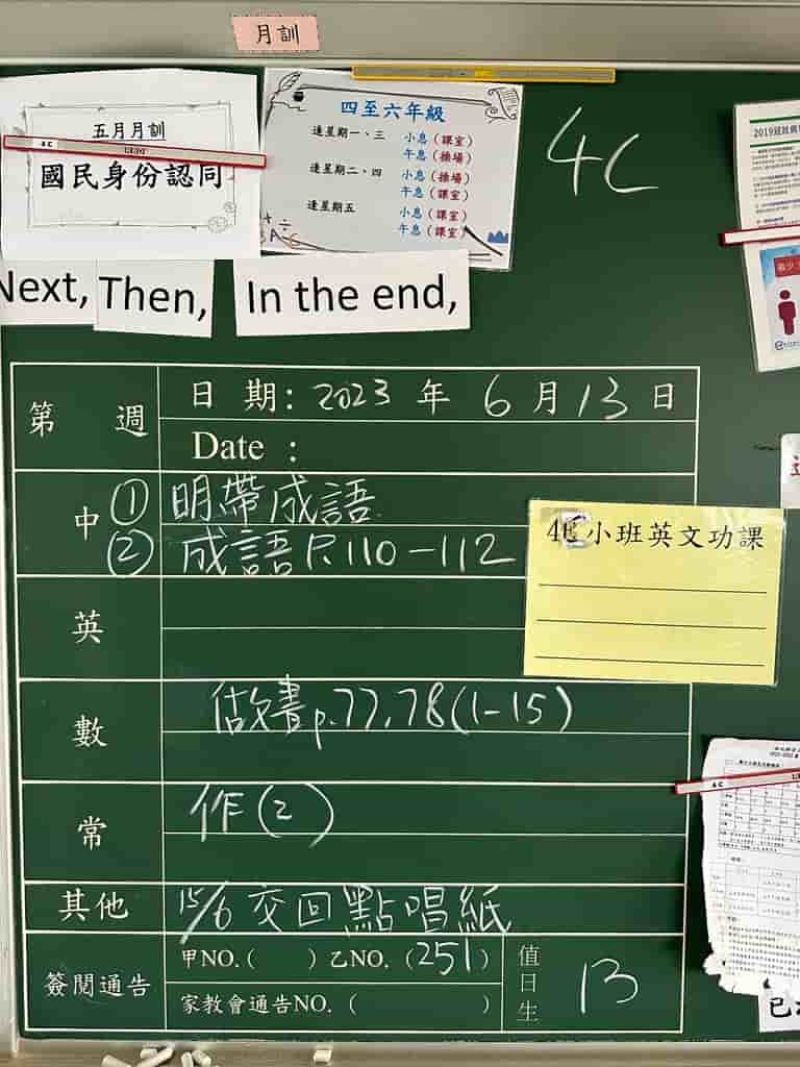 月訓
五月月訓
國民身份認同
四至六年級
逢星期一、三 小息（課室）
午息（操場）
逢星期二、四 小息（操場）
午息（課室）
逢星期五 小息（課室）
午息（課室）
4C
Next, Then, In the end,
第 週
日 期: 2023 年 6 月 13 日
Date :
中 ① 明帶成語
② 成語 P.110-112
4E小班英文功課
英
數 做書 p.77,78(1-15)
常 作(2)
其他 15/6 交回點唱紙
簽閱通告 甲NO.( ) 乙NO.(251)
家教會通告NO.( )
值日生 13